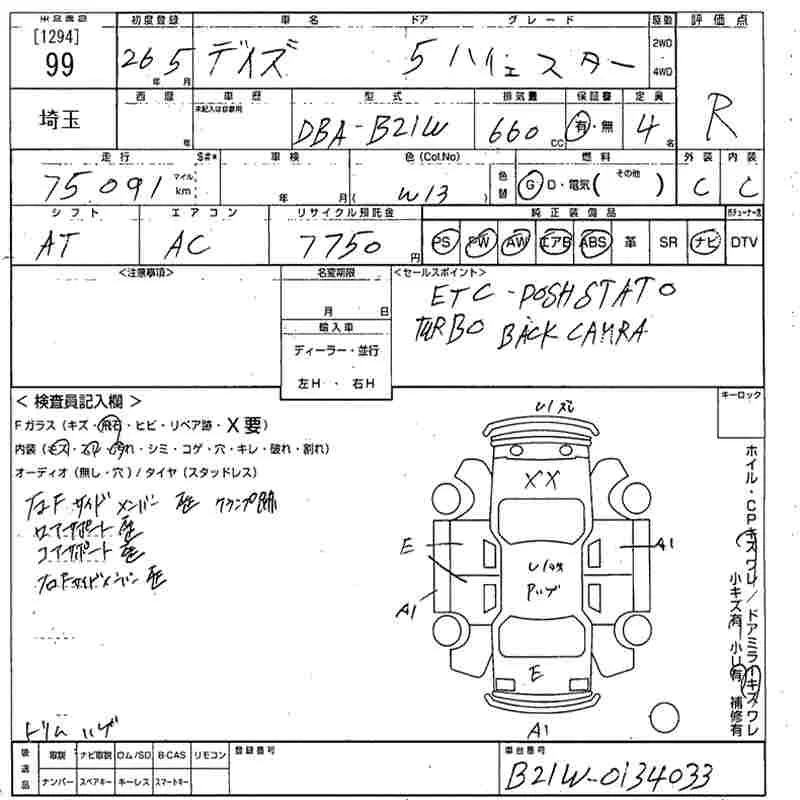 [1294] 初度登録 車名 ドア グレード 駆動 評価点
99 26年 5月 デイズ 5 ハイェスター 2WD 4WD
R
西暦 車歴 型式 排気量 保証書 定員
埼玉 年 未記入は自家用 DBA-B21W 660 CC 有・無 4名
走行 $#* 車検 色(Col.No) 燃料 外装 内装
75,091 マイル km 年 月 ( W13 ) 色替 G D・電気( その他 ) C C
シフト エアコン リサイクル預託金 純正装備品
AT AC 7750円 PS PW AW エアB ABS 革 SR ナビ DTV
<注意事項> 名変期限 <セールスポイント>
月 日 ETC・POSHSTATO
輸入車 TURBO BACK CAMRA
ディーラー・並行
左H ・ 右H
<検査員記入欄> キーロック
Fガラス(キズ・飛石・ヒビ・リペア跡・X要)
内装(キズ・スレ・汚れ・シミ・コゲ・穴・キレ・破れ・割れ)
オーディオ(無し・穴)/タイヤ(スタッドレス)
サイドメンバー クランプ跡
コアサポート
サイドメンバー
X X
E A1
A1
E
A1
ホイル・CPキズワレ/ドアミラーキズワレ
小キズ有 小U有 補修有
トリムハゲ
後送品 取説 ナビ取説 ロム/SD B-CAS リモコン 登録番号 車台番号
ナンバー スペアキー キーレス スマートキー B21W-0134033